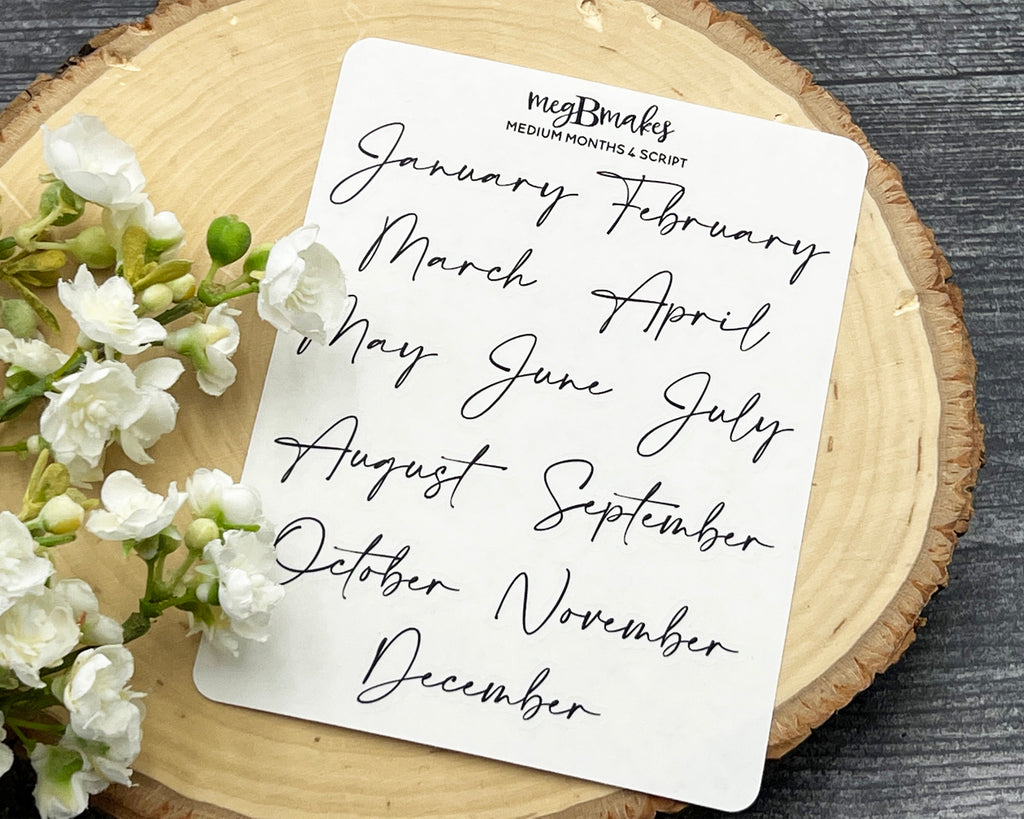 megBmakes
MEDIUM MONTHS 4 SCRIPT
January February
March April
May June July
August September
October November
December